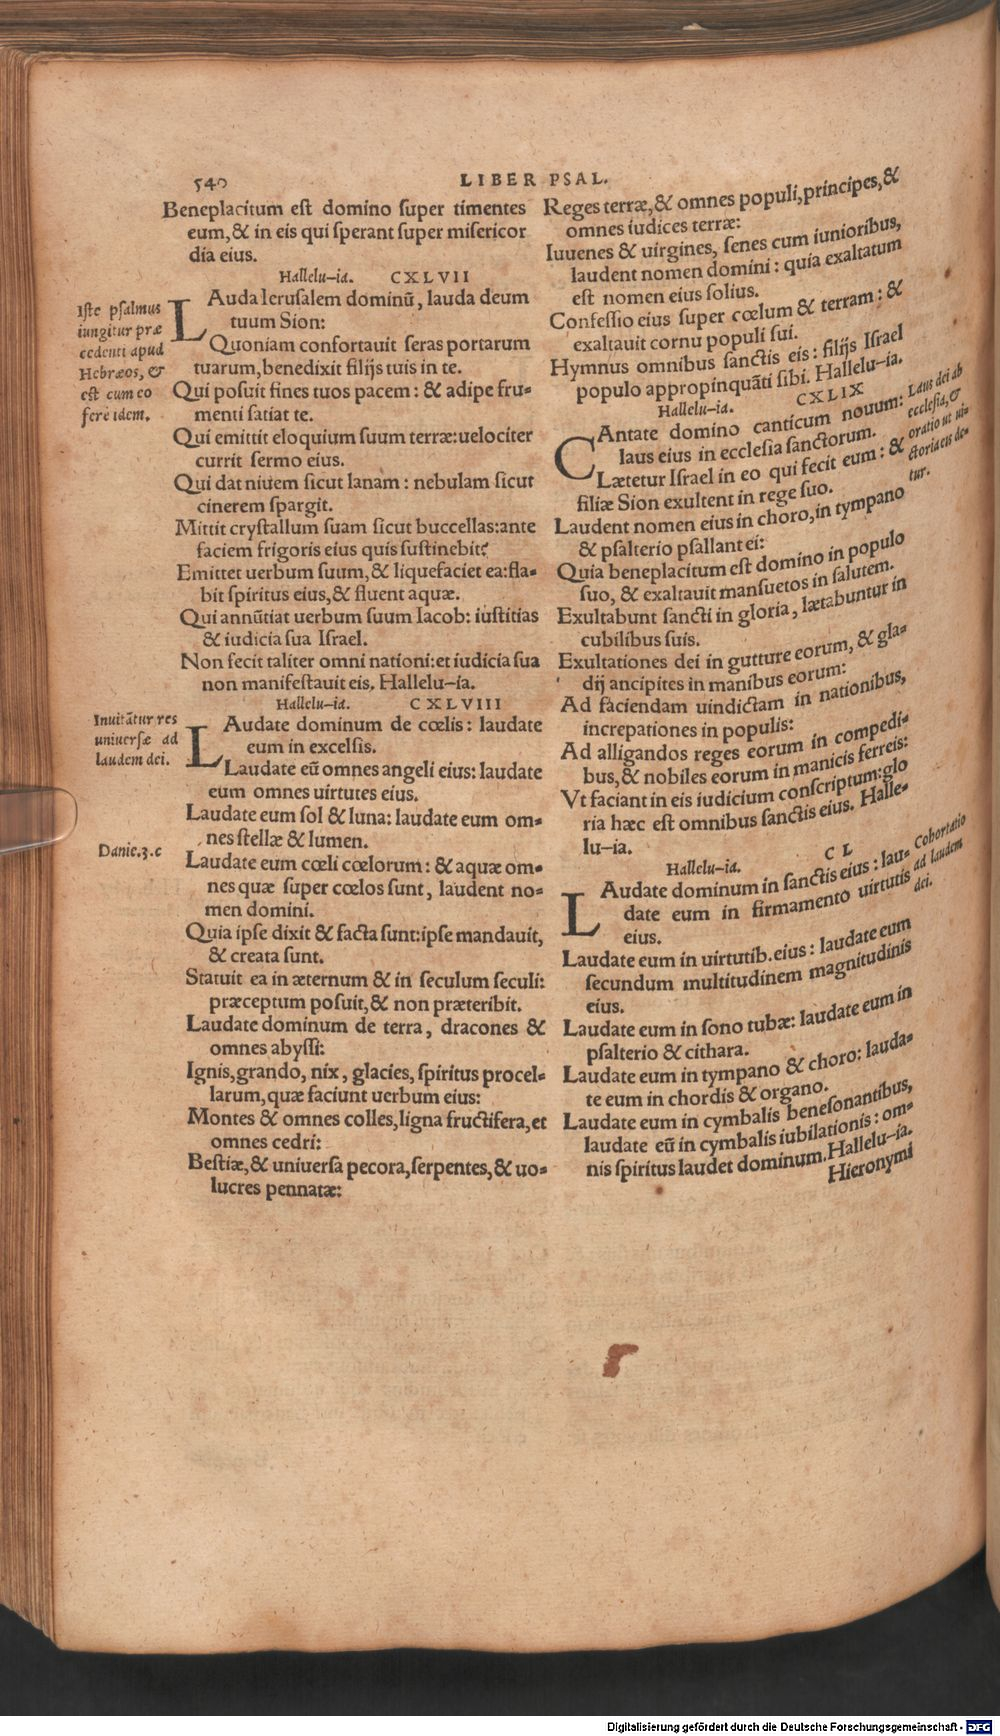 540
LIBER PSAL.
Beneplacitum est domino super timentes
eum, & in eis qui sperant super misericor
dia eius.
Hallelu-ia. CXLVII
Iste psalmus
iungitur præ
cedenti apud
Hebræos, &
est cum eo
fere idem.
LAuda Ierusalem dominũ, lauda deum
tuum Sion:
Quoniam confortauit seras portarum
tuarum, benedixit filijs tuis in te.
Qui posuit fines tuos pacem: & adipe fru-
menti satiat te.
Qui emittit eloquium suum terræ: uelociter
currit sermo eius.
Qui dat niuem sicut lanam: nebulam sicut
cinerem spargit.
Mittit crystallum suam sicut buccellas: ante
faciem frigoris eius quis sustinebit?
Emittet uerbum suum, & liquefaciet ea: fla-
bit spiritus eius, & fluent aquæ.
Qui annũtiat uerbum suum Iacob: iustitias
& iudicia sua Israel.
Non fecit taliter omni nationi: et iudicia sua
non manifestauit eis. Hallelu-ia.
Hallelu-ia. CXLVIII
Inuitãtur res
uniuersæ ad
laudem dei.
LAudate dominum de cœlis: laudate
eum in excelsis.
Laudate eũ omnes angeli eius: laudate
eum omnes uirtutes eius.
Laudate eum sol & luna: laudate eum om-
nes stellæ & lumen.
Danie.3.c
Laudate eum cœli cœlorum: & aquæ om-
nes quæ super cœlos sunt, laudent no-
men domini.
Quia ipse dixit & facta sunt: ipse mandauit,
& creata sunt.
Statuit ea in æternum & in seculum seculi:
præceptum posuit, & non præteribit.
Laudate dominum de terra, dracones &
omnes abyssi:
Ignis, grando, nix, glacies, spiritus procel-
larum, quæ faciunt uerbum eius:
Montes & omnes colles, ligna fructifera, et
omnes cedri:
Bestiæ, & uniuersa pecora, serpentes, & uo-
lucres pennatæ:
Reges terræ, & omnes populi, principes, &
omnes iudices terræ:
Iuuenes & uirgines, senes cum iunioribus,
laudent nomen domini: quia exaltatum
est nomen eius solius.
Confessio eius super cœlum & terram: &
exaltauit cornu populi sui.
Hymnus omnibus sanctis eis: filijs Israel
populo appropinquãti sibi. Hallelu-ia.
Hallelu-ia. CXLIX
Laus dei ab
ecclesia, &
oratio ut ui-
ctoria eis de-
tur.
CAntate domino canticum nouum:
laus eius in ecclesia sanctorum.
Lætetur Israel in eo qui fecit eum: &
filiæ Sion exultent in rege suo.
Laudent nomen eius in choro, in tympano
& psalterio psallant ei:
Quia beneplacitum est domino in populo
suo, & exaltauit mansuetos in salutem.
Exultabunt sancti in gloria, lætabuntur in
cubilibus suis.
Exultationes dei in gutture eorum, & gla-
dij ancipites in manibus eorum:
Ad faciendam uindictam in nationibus,
increpationes in populis:
Ad alligandos reges eorum in compedi-
bus, & nobiles eorum in manicis ferreis:
Vt faciant in eis iudicium conscriptum: glo
ria hæc est omnibus sanctis eius. Halle-
lu-ia.
Hallelu-ia. CL
Cohortatio
ad laudem
dei.
LAudate dominum in sanctis eius: lau-
date eum in firmamento uirtutis
eius.
Laudate eum in uirtutib. eius: laudate eum
secundum multitudinem magnitudinis
eius.
Laudate eum in sono tubæ: laudate eum in
psalterio & cithara.
Laudate eum in tympano & choro: lauda-
te eum in chordis & organo.
Laudate eum in cymbalis benesonantibus,
laudate eũ in cymbalis iubilationis: om-
nis spiritus laudet dominum. Hallelu-ia.
Hieronymi
Digitalisierung gefördert durch die Deutsche Forschungsgemeinschaft - DFG